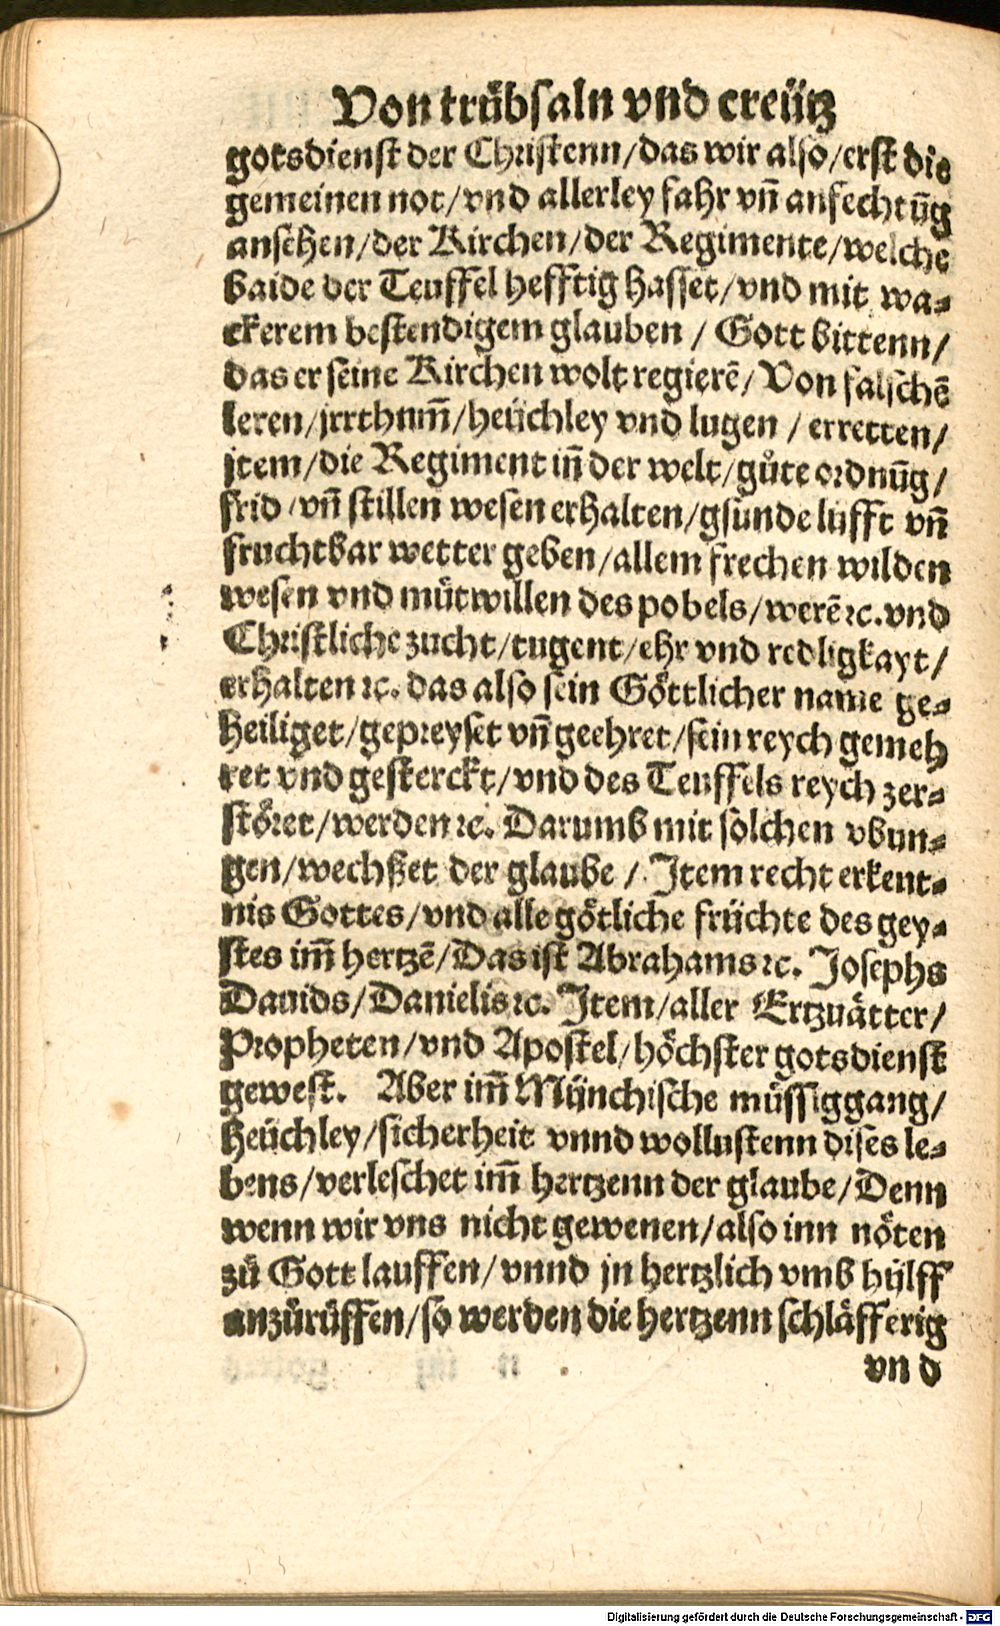 Von trůbsaln vnd creütz
gotsdienst der Christenn/das wir also/erst die
gemeinen not/vnd allerley fahr vñ anfechtūg
ansehen/der Kirchen/der Regimente/welche
baide der Teuffel hefftig hasset/vnd mit wa-
ckerem bestendigem glauben / Gott bittenn/
das er seine Kirchen wolt regierē/Von falschē
leren/jrrthum̃/heüchley vnd lugen / erretten/
jtem/die Regiment iñ der welt/gůte ordnūg/
frid/vñ stillen wesen erhalten/gsunde lufft vñ
fruchtbar wetter geben/allem frechen wilden
wesen vnd můtwillen des pobels/werē ⁊c.vnd
Christliche zucht/tugent/ehr vnd redligkayt/
erhalten ⁊c. das also sein Göttlicher name ge-
heiliget/gepreyset vñ geehret/sein reych gemeh
ret vnd gesterckt/vnd des Teuffels reych zer-
störet/werden ⁊c. Darumb mit solchen vbun-
gen/wechßet der glaube / Jtem recht erkent-
nis Gottes/vnd alle götliche früchte des gey-
stes im̃ hertzē/Das ist Abrahams ⁊c. Josephs
Dauids/Danielis ⁊c. Jtem/aller Ertzuätter/
Propheten/vnd Apostel/höchster gotsdienst
gewest. Aber im̃ Münchische müssiggang/
heüchley/sicherheit vnnd wollustenn dises le-
bens/verleschet im̃ hertzenn der glaube/Denn
wenn wir vns nicht gewenen/also inn nöten
zů Gott lauffen/vnnd jn hertzlich vmb hülff
anzůrůffen/so werden die hertzenn schläfferig
vn d
Digitalisierung gefördert durch die Deutsche Forschungsgemeinschaft - DFG